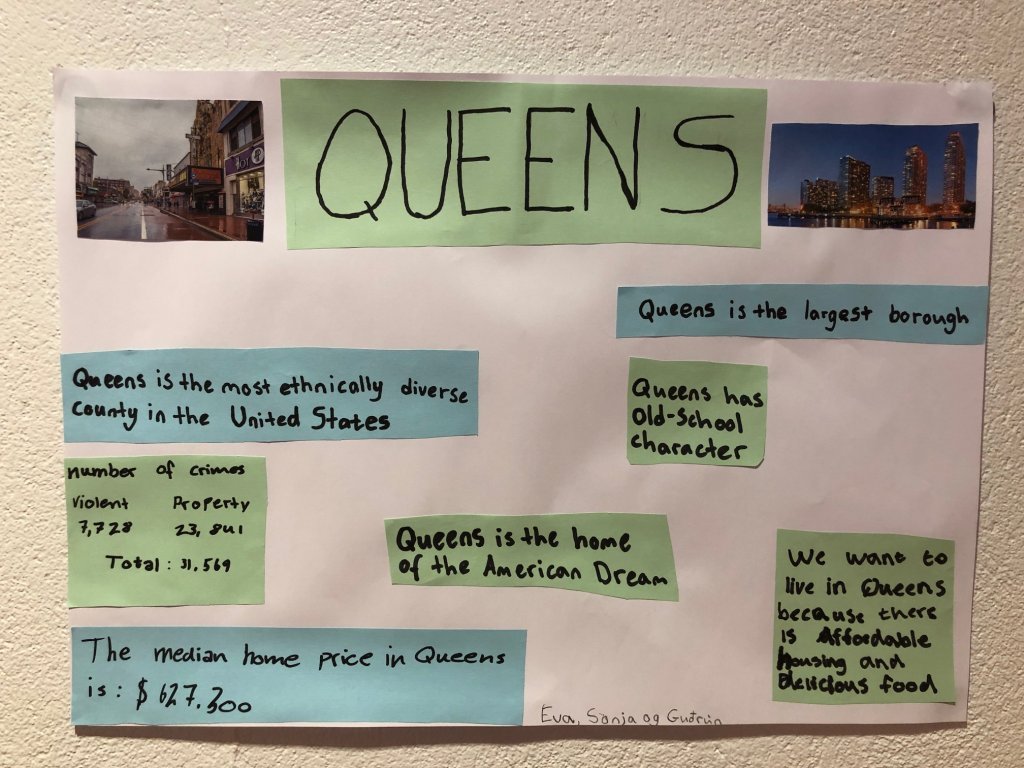 QUEENS
Queens is the largest borough
Queens is the most ethnically diverse
county in the United States
Queens has
Old-School
character
number of crimes
Violent Property
7,728 23,841
Total: 31,569
Queens is the home
of the American Dream
We want to
live in Queens
because there
is Affordable
Housing and
delicious food
The median home price in Queens
is: $ 627.300
Eva, Sonja og Guðrún